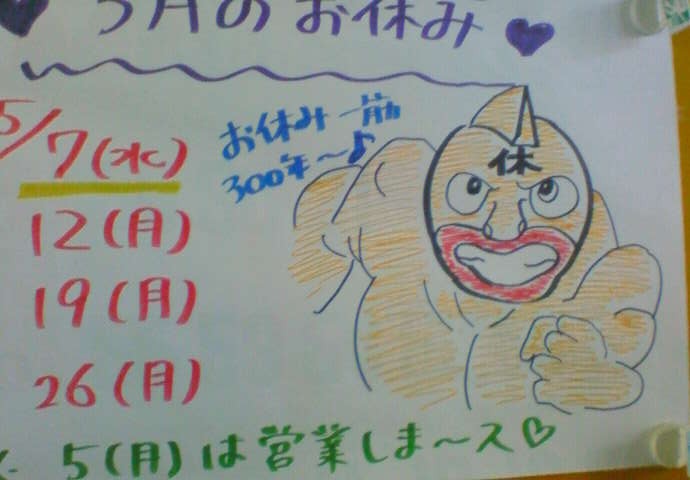 5月のお休み
5/7(水)
12(月)
19(月)
26(月)
お休み一筋
300年〜♪
休
※ 5(月)は営業しま〜ス♡